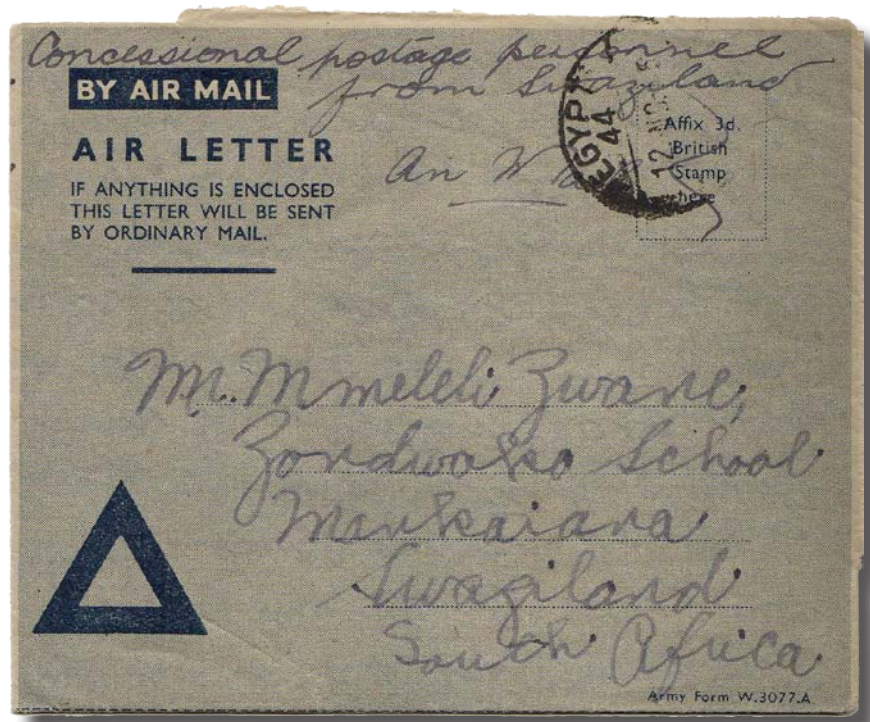 Concessional postage personnel
from Swaziland
BY AIR MAIL
AIR LETTER
IF ANYTHING IS ENCLOSED
THIS LETTER WILL BE SENT
BY ORDINARY MAIL.
EGYPT
44
12
Affix 3d.
British
Stamp
here
Mr. Mmeleli Zwane,
School
Swaziland
South Africa
Army Form W.3077.A